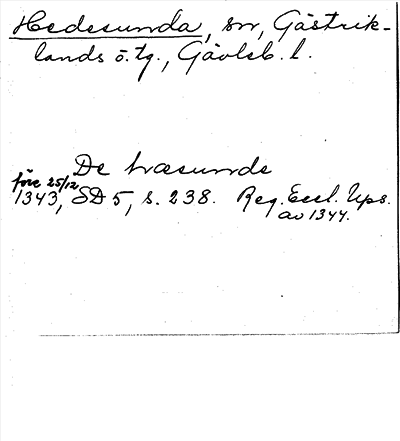 Hedesunda, sn, Gästrik-
lands ö. tg., Gävleb. l.
De hæsunde
före 25/12
1343, SD 5, s. 238. Reg. Eccl. Ups.
av 1344.